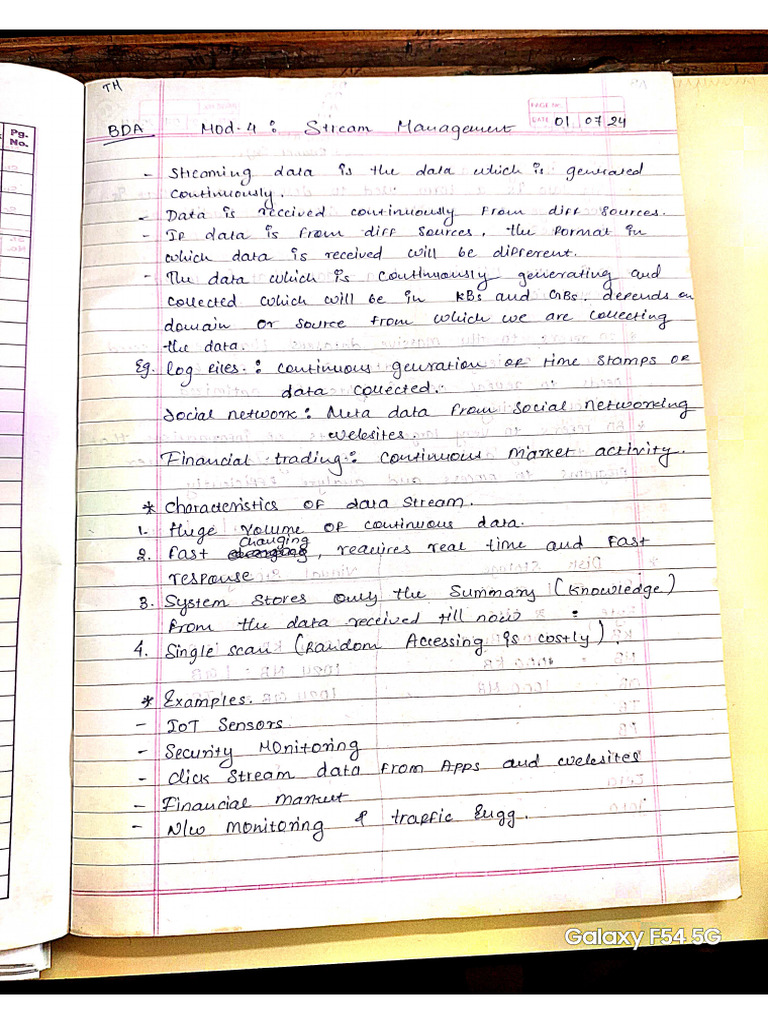 TH
PAGE No.
DATE 01 07 24
BDA Mod-4 : Stream Management
Pg.
No.
- Streaming data is the data which is generated
continuously.
- Data is received continuously from diff sources.
- If data is from diff sources, the format in
which data is received will be different.
- The data which is continuously generating and
collected which will be in KBs and GBs. depends on
domain or source from which we are collecting
the data.
Eg. Log files. : continuous generation of time stamps of
data collected.
Social network : Meta data from social networking
websites.
Financial trading : continuous market activity.
* Characteristics of data stream.
1. Huge volume of continuous data.
changing
2. Fast , requires real time and fast
response
3. System stores only the summary (knowledge)
from the data received till now :
4. Single scan (Random Accessing is costly).
* Examples.
- IoT Sensors.
- Security Monitoring
- Click stream data from Apps and websites
- Financial market
- N/w monitoring & traffic Engg.
Galaxy F54 5G